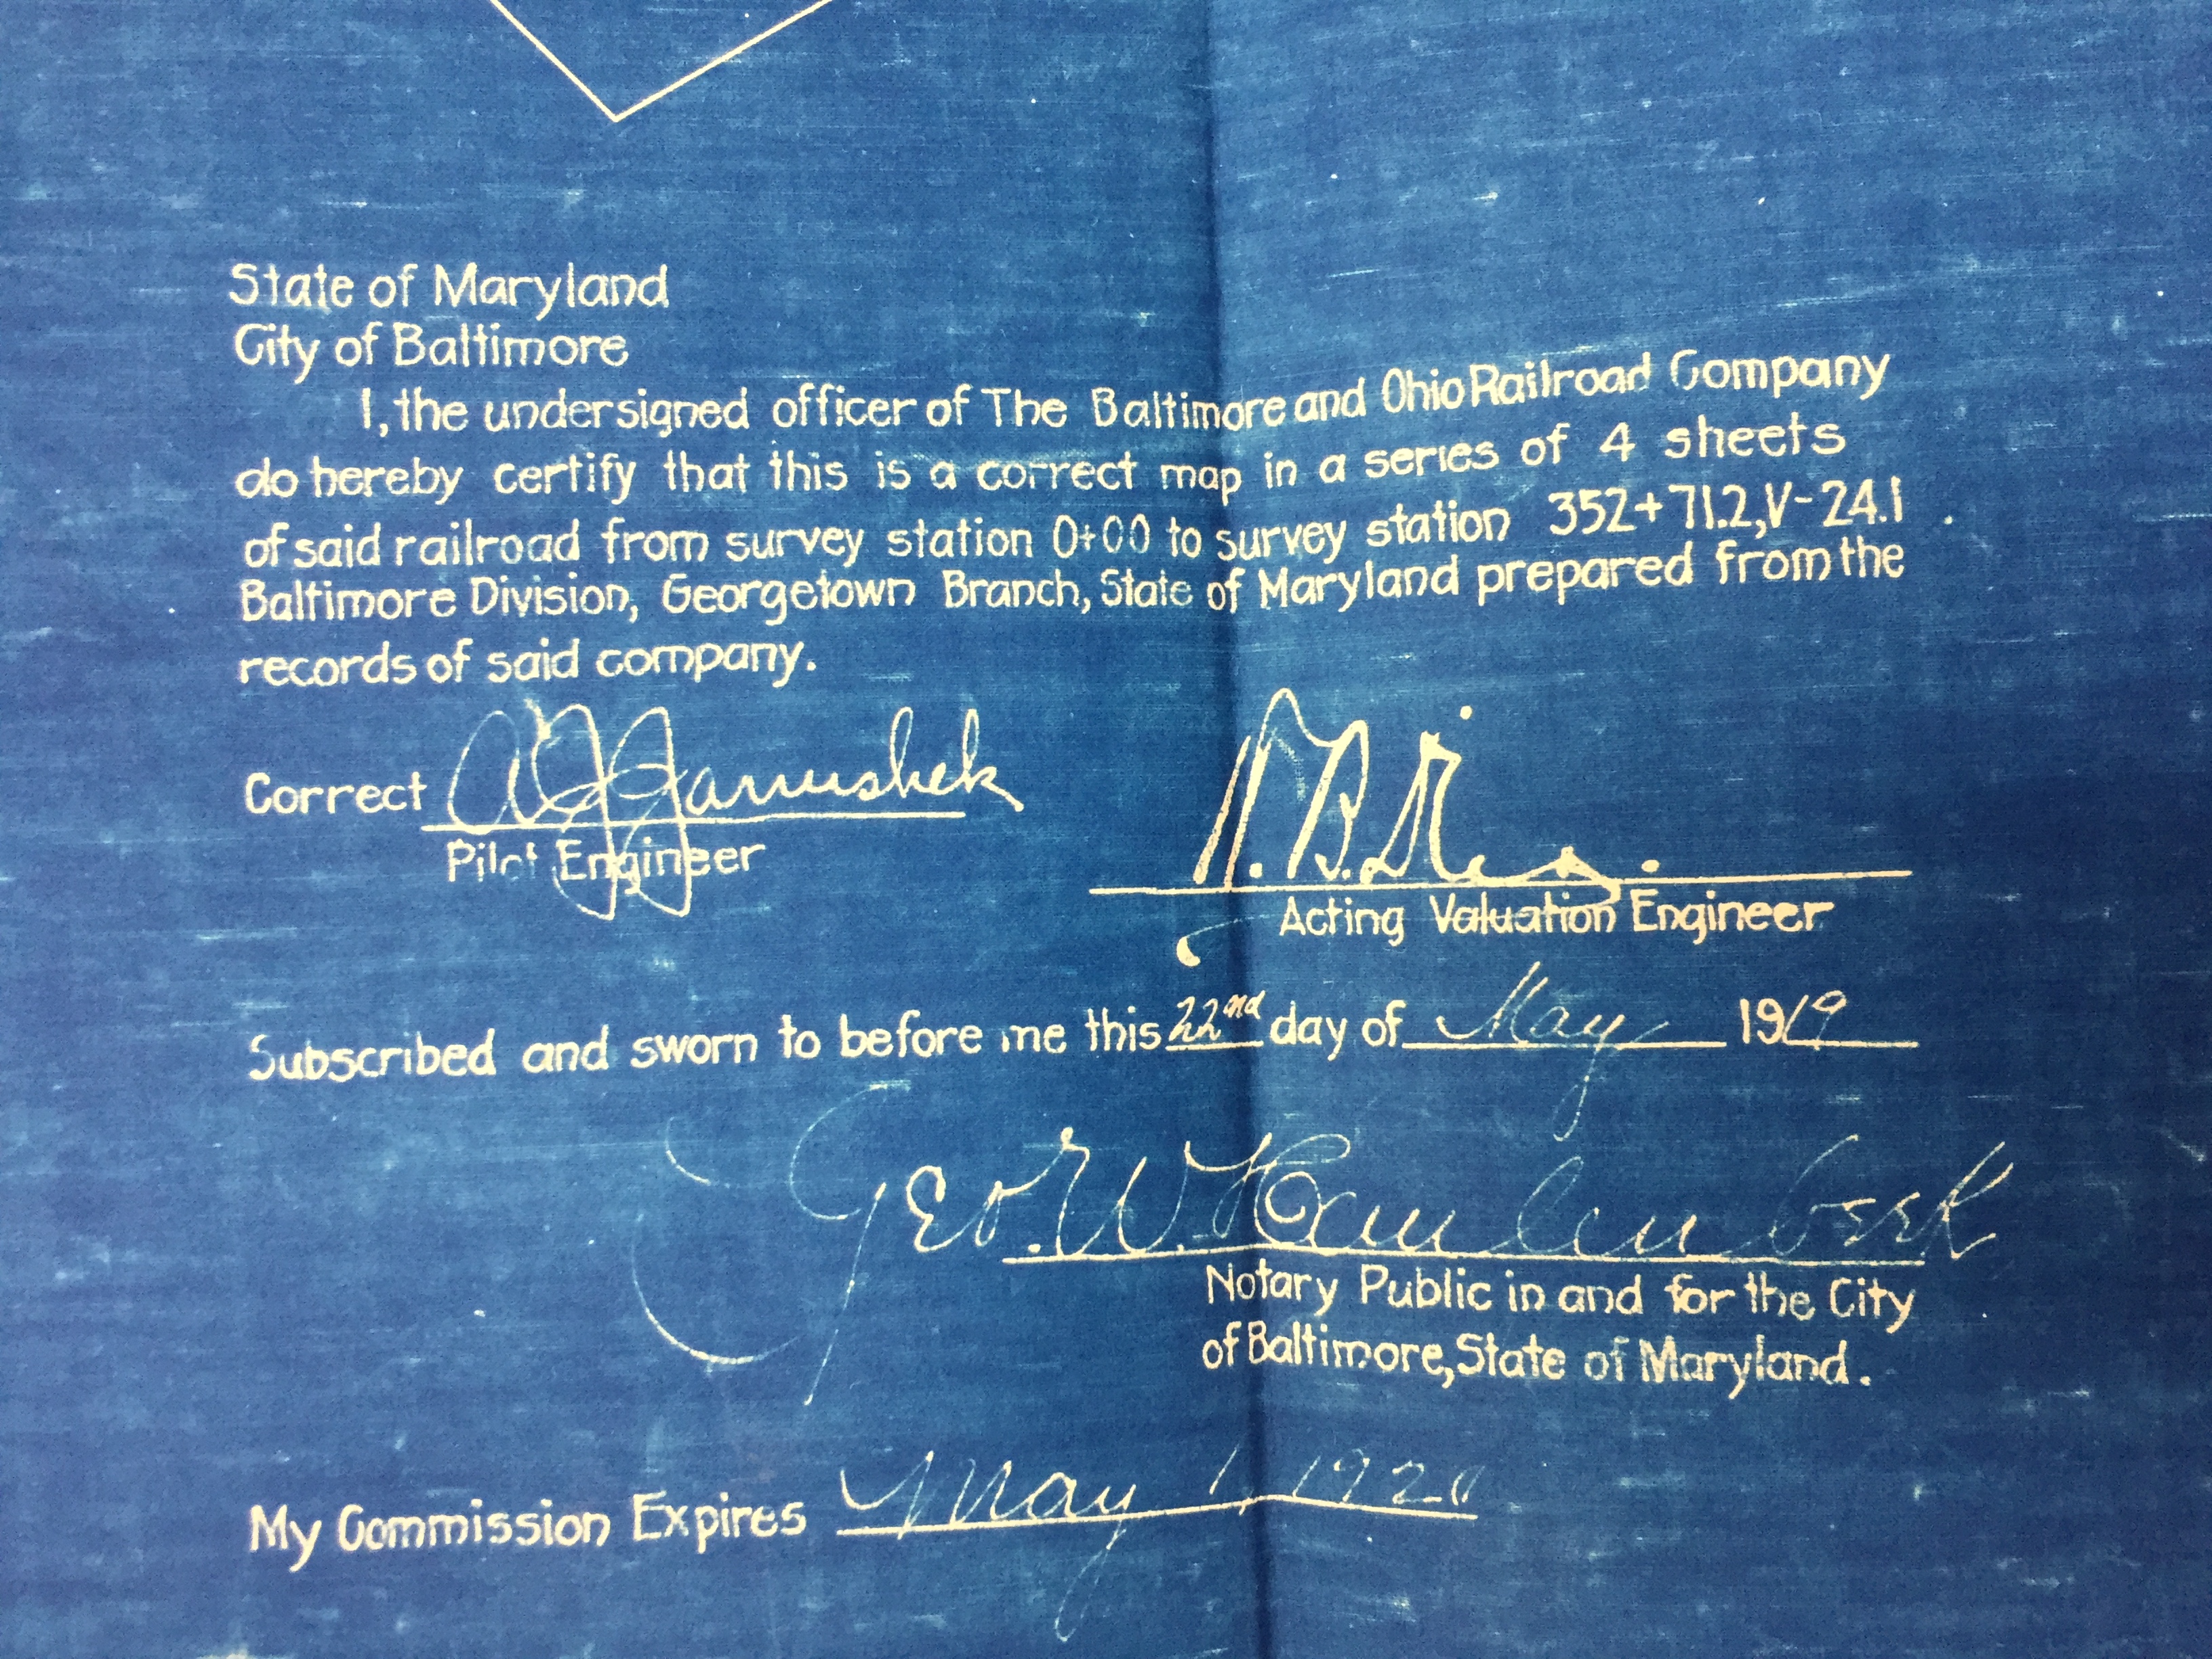 State of Maryland
City of Baltimore
I, the undersigned officer of The Baltimore and Ohio Railroad Company
do hereby certify that this is a correct map in a series of 4 sheets
of said railroad from survey station 0+00 to survey station 352+71.2, V-24.1
Baltimore Division, Georgetown Branch, State of Maryland prepared from the
records of said company.
Correct Janushek
Pilot Engineer
Acting Valuation Engineer
Subscribed and sworn to before me this 22nd day of May 1919
Geo. W.
Notary Public in and for the City
of Baltimore, State of Maryland.
My Commission Expires May 1, 1920